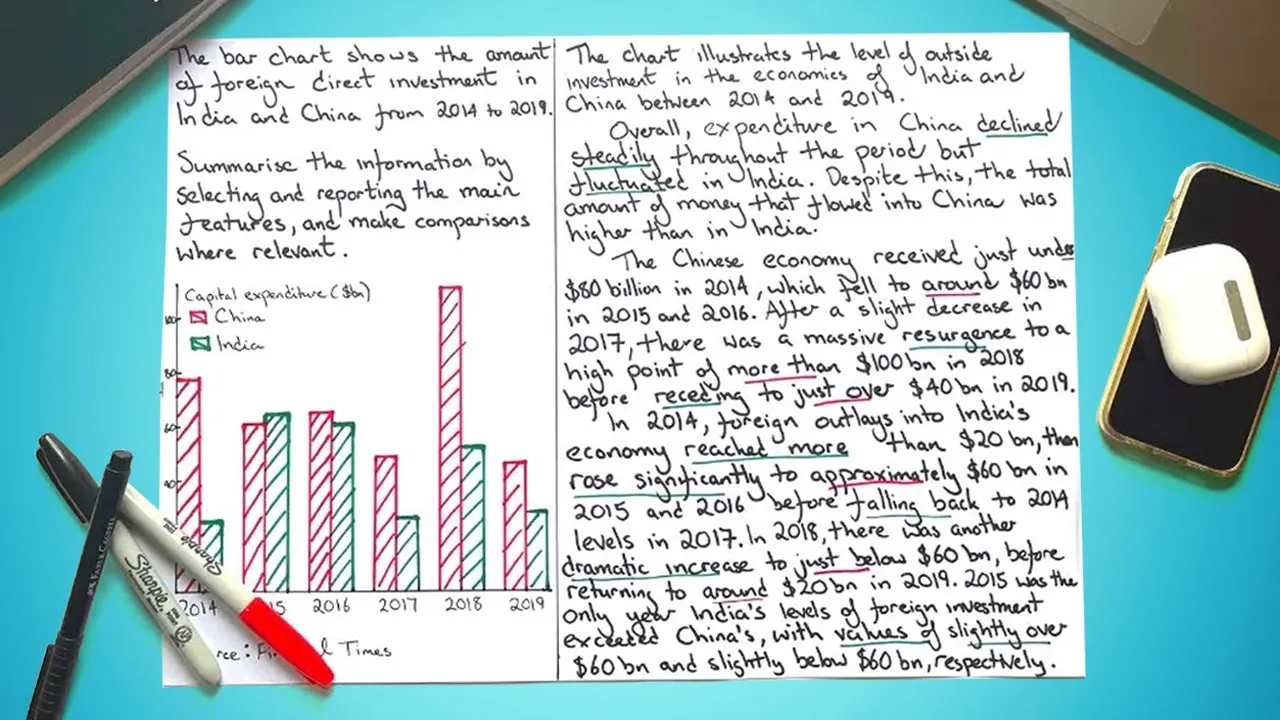 The bar chart shows the amount
of foreign direct investment in
India and China from 2014 to 2019.
Summarise the information by
selecting and reporting the main
features, and make comparisons
where relevant.
Capital expenditure ($bn)
China
India
80
60
40
2014
2016
2017
2018
2019
Times
The chart illustrates the level of outside
investment in the economies of India and
China between 2014 and 2019.
Overall, expenditure in China declined
steadily throughout the period but
fluctuated in India. Despite this, the total
amount of money that flowed into China was
higher than in India.
The Chinese economy received just under
$80 billion in 2014, which fell to around $60 bn
in 2015 and 2016. After a slight decrease in
2017, there was a massive resurgence to a
high point of more than $100 bn in 2018
before receding to just over $40 bn in 2019.
In 2014, foreign outlays into India's
economy reached more than $20 bn, then
rose significantly to approximately $60 bn in
2015 and 2016 before falling back to 2014
levels in 2017. In 2018, there was another
dramatic increase to just below $60 bn, before
returning to around $20 bn in 2019. 2015 was the
only year India's levels of foreign investment
exceeded China's, with values of slightly over
$60 bn and slightly below $60 bn, respectively.
Sharpie
Sharpie
FABER-CASTELL